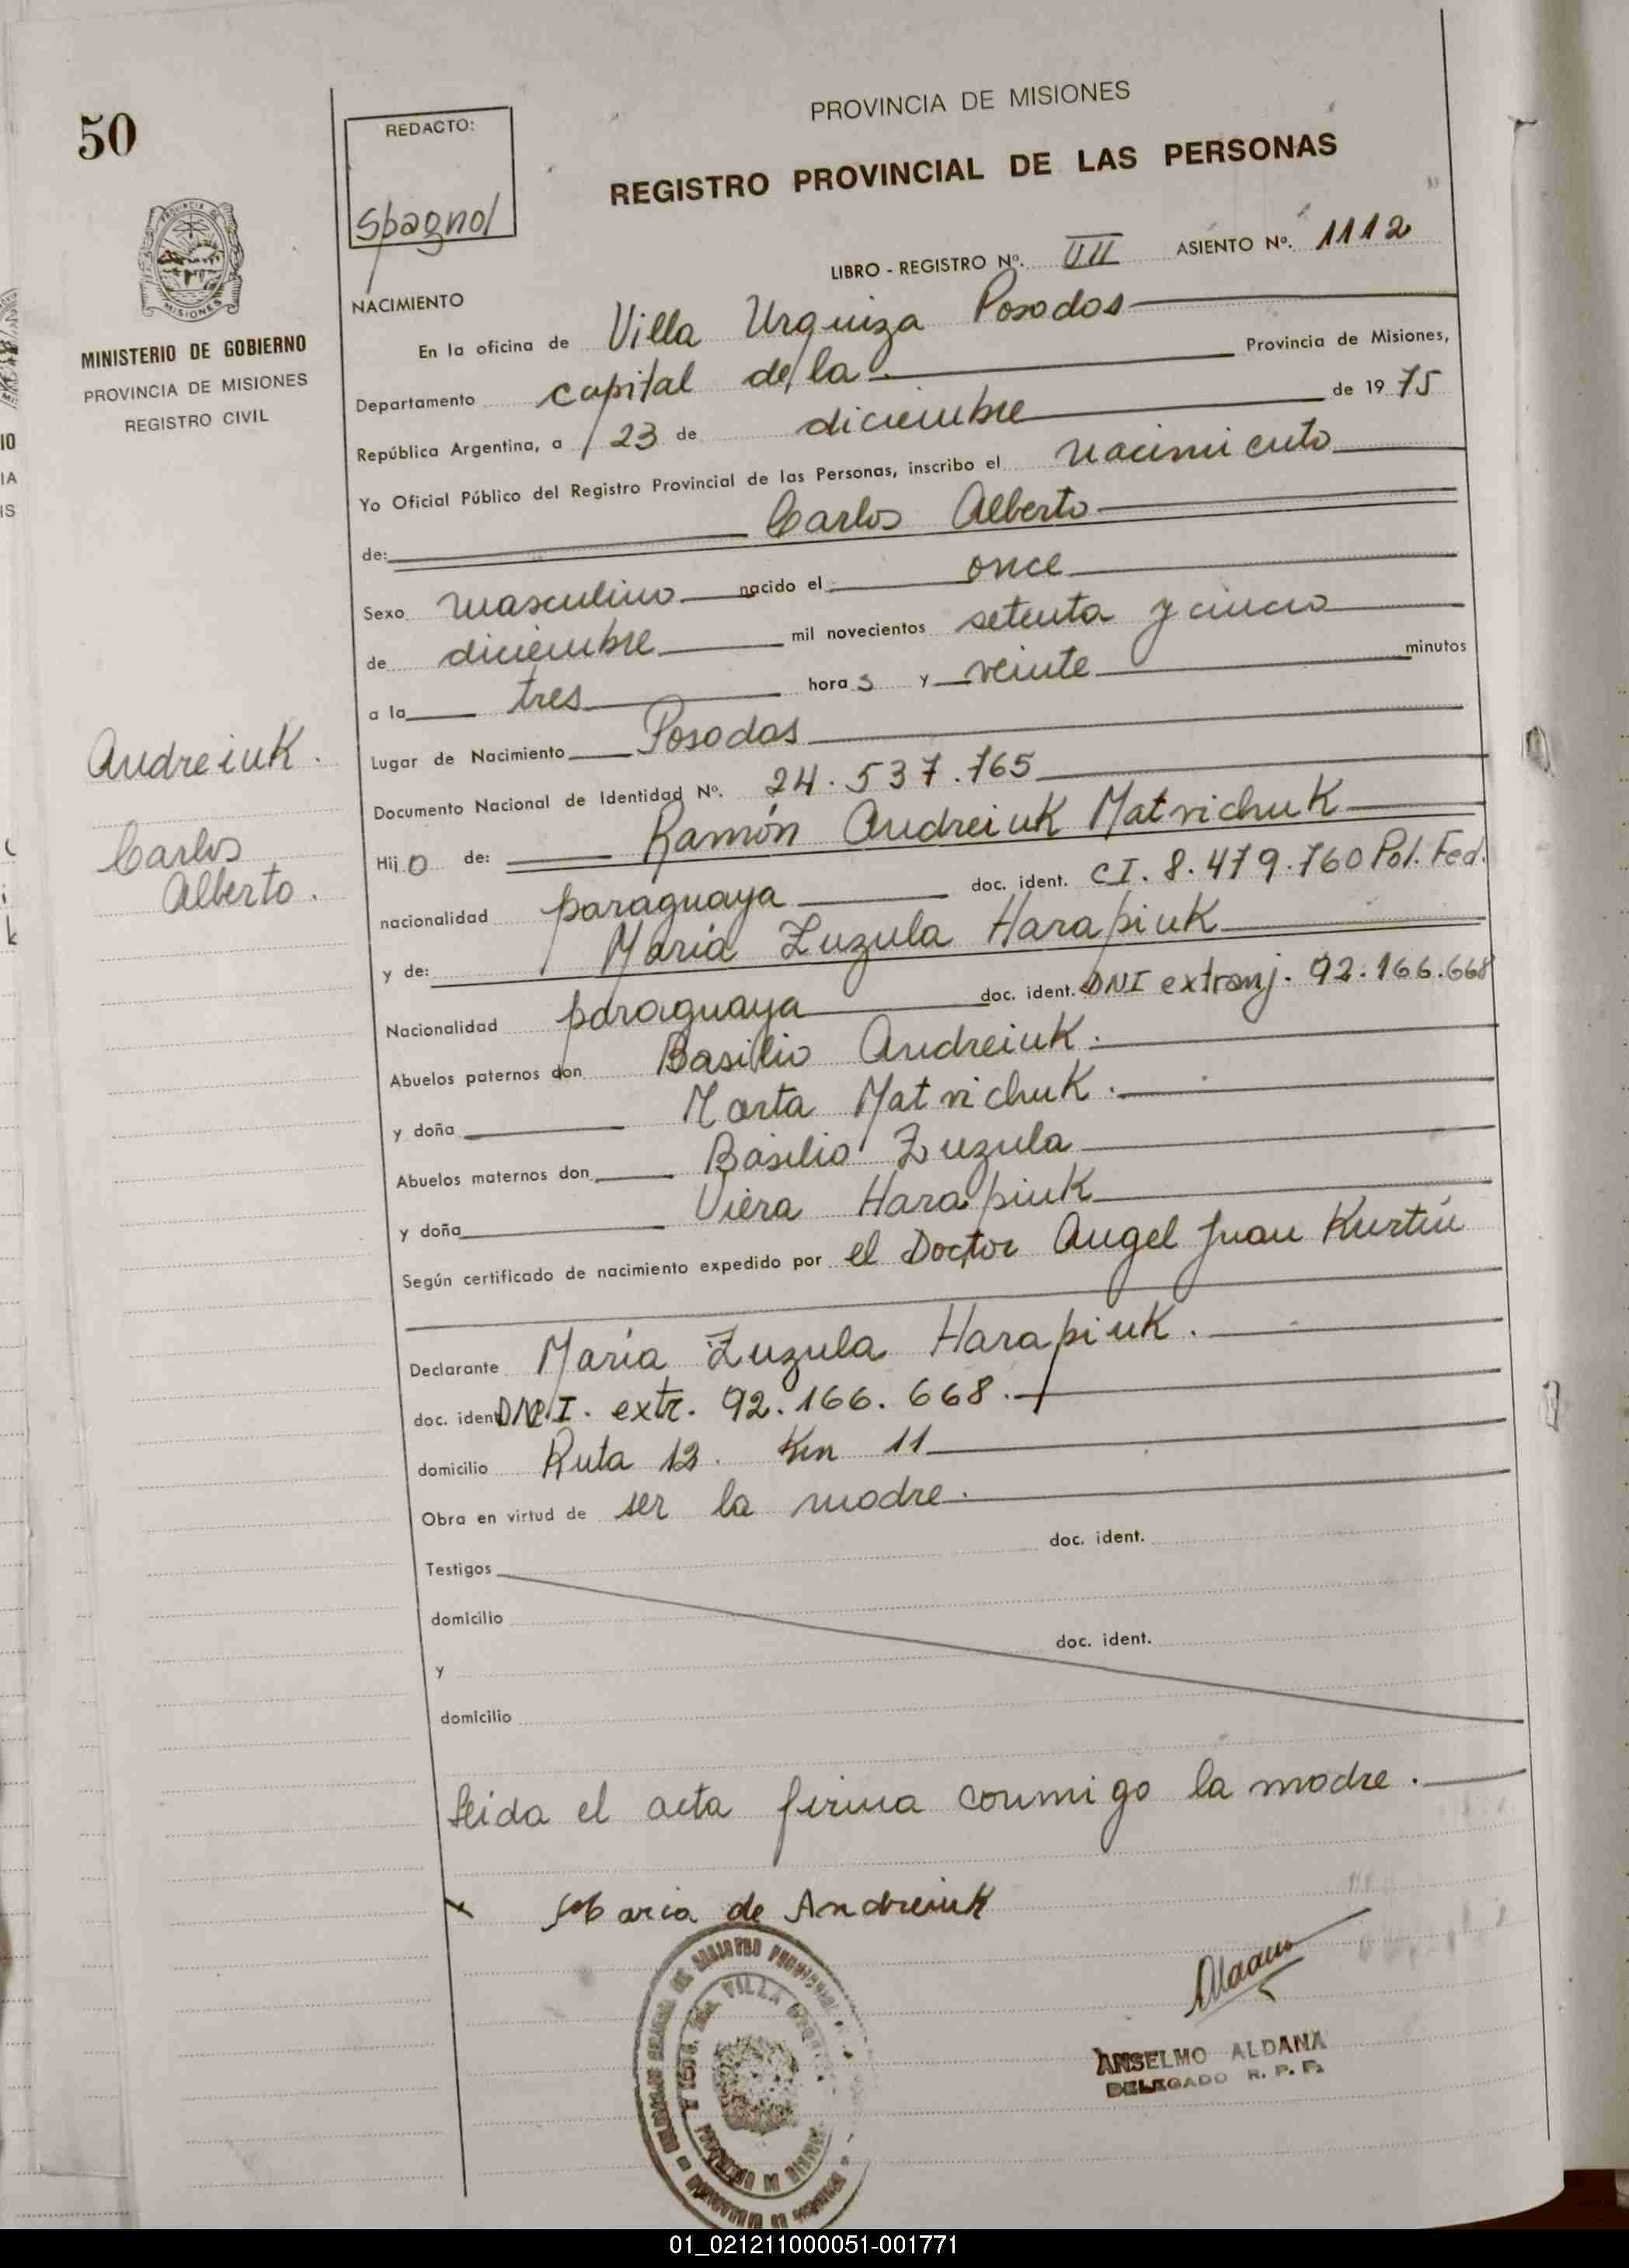 50
PROVINCIA DE MISIONES
REDACTO:
Spagnol
REGISTRO PROVINCIAL DE LAS PERSONAS
LIBRO - REGISTRO Nº. VII ASIENTO Nº. 1112
MINISTERIO DE GOBIERNO
PROVINCIA DE MISIONES
REGISTRO CIVIL
NACIMIENTO
En la oficina de Villa Urquiza Posadas
Departamento capital de la Provincia de Misiones,
República Argentina, a 23 de diciembre de 1975
Yo Oficial Público del Registro Provincial de las Personas, inscribo el nacimiento
de: Carlos Alberto
Sexo masculino nacido el once
de diciembre mil novecientos setenta y cinco
a la tres horas y veinte minutos
Lugar de Nacimiento Posadas
Documento Nacional de Identidad Nº. 24.537.765
Andreiuk.
Carlos
Alberto.
Hijo de: Ramón Andreiuk Matvichuk
nacionalidad paraguaya doc. ident. CI. 8.479.760 Pol. Fed.
y de: María Zuzula Harapiuk
Nacionalidad paraguaya doc. ident. DNI extranj. 92.166.668
Abuelos paternos don Basilio Andreiuk.
y doña Marta Matvichuk.
Abuelos maternos don Basilio Zuzula
y doña Viera Harapiuk
Según certificado de nacimiento expedido por el Doctor Angel Juan Kurtiú
Declarante María Zuzula Harapiuk.
doc. ident D.N.I. extr. 92.166.668.
domicilio Ruta 12. Km 11
Obra en virtud de ser la madre.
Testigos doc. ident.
domicilio
y doc. ident.
domicilio
Leida el acta firma conmigo la madre.
Maria de Andreiuk
ANSELMO ALDANA
DELEGADO R. P. P.
01_021211000051-001771